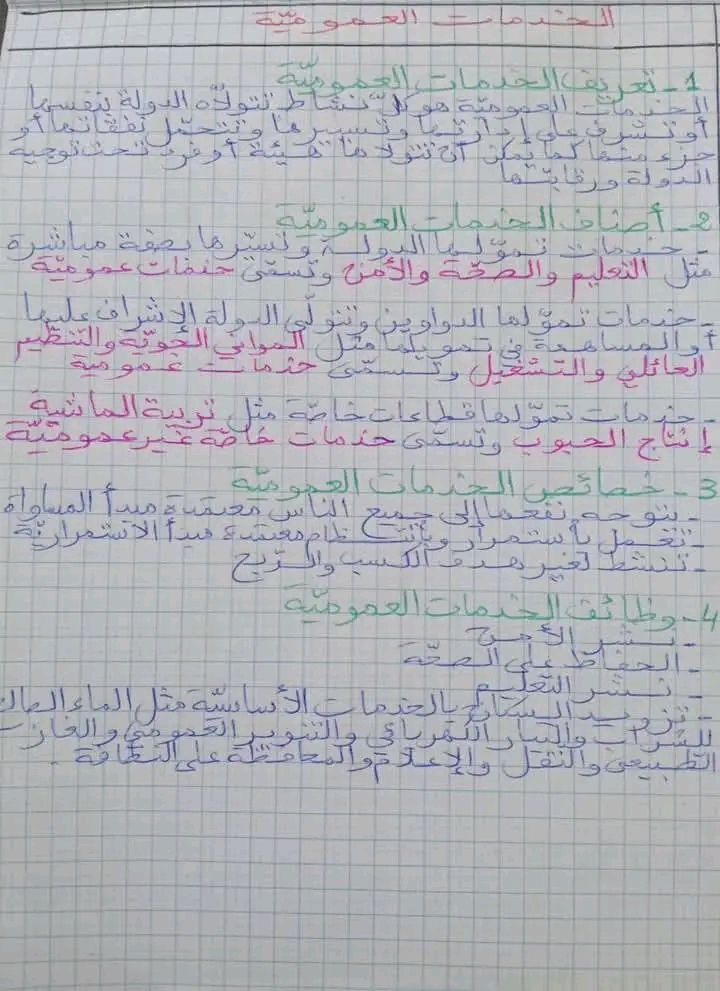 الخدمات العموميّة
1- تعريف الخدمات العموميّة
الخدمات العموميّة هو كلّ نشاط تتولاّه الدولة بنفسها
أو تشرف على إدارتها وتسييرها وتتحمّل نفقاتها أو
جزء منها كما يمكن أن تتولاها هيئة أو فرد تحت توجيه
الدولة ورقابتها
2- أصناف الخدمات العموميّة
- خدمات تموّلها الدولة وتسيّرها بصفة مباشرة
مثل التعليم والصحّة والأمن وتسمّى خدمات عموميّة
- خدمات تموّلها الدواوين وتتولّى الدولة الإشراف عليها
أو المساهمة في تمويلها مثل الموانئ الجويّة والتنظيم
العائلي والتشغيل وتسمّى خدمات عمومية
- خدمات تموّلها قطاعات خاصّة مثل تربية الماشية
إنتاج الحبوب وتسمّى خدمات خاصّة غير عموميّة
3- خصائص الخدمات العموميّة
- يتوجه نفعها إلى جميع الناس معتمدة مبدأ المساواة
- تعمل باستمرار وبانتظام معتمدة مبدأ الاستمراريّة
- تنشط لغير هدف الكسب والرّبح
4- وظائف الخدمات العموميّة
- نشر الأمن
- الحفاظ على الصحّة
- نشر التعليم
- تزويد السكان بالخدمات الأساسيّة مثل الماء الصالح
للشراب والتيار الكهربائي والتنوير العمومي والغاز
الطبيعي والنقل والإعلام والمحافظة على النظافة.